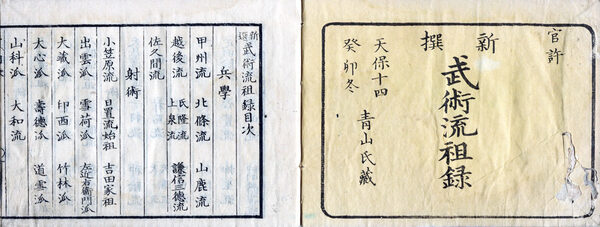 官許
新撰
武術流祖録
天保十四
癸卯冬
青山氏藏
新撰武術流祖録目次
兵學
甲州流 北條流 山鹿流
越後流 氏隆流 上泉流 謙信三徳流
佐久間流
射術
小笠原流 日置流始祖 吉田家祖
出雲派 雪荷派 左近右衛門派
大藏派 印西派 竹林派
大心派 壽德派 道雪派
山科派 大和流